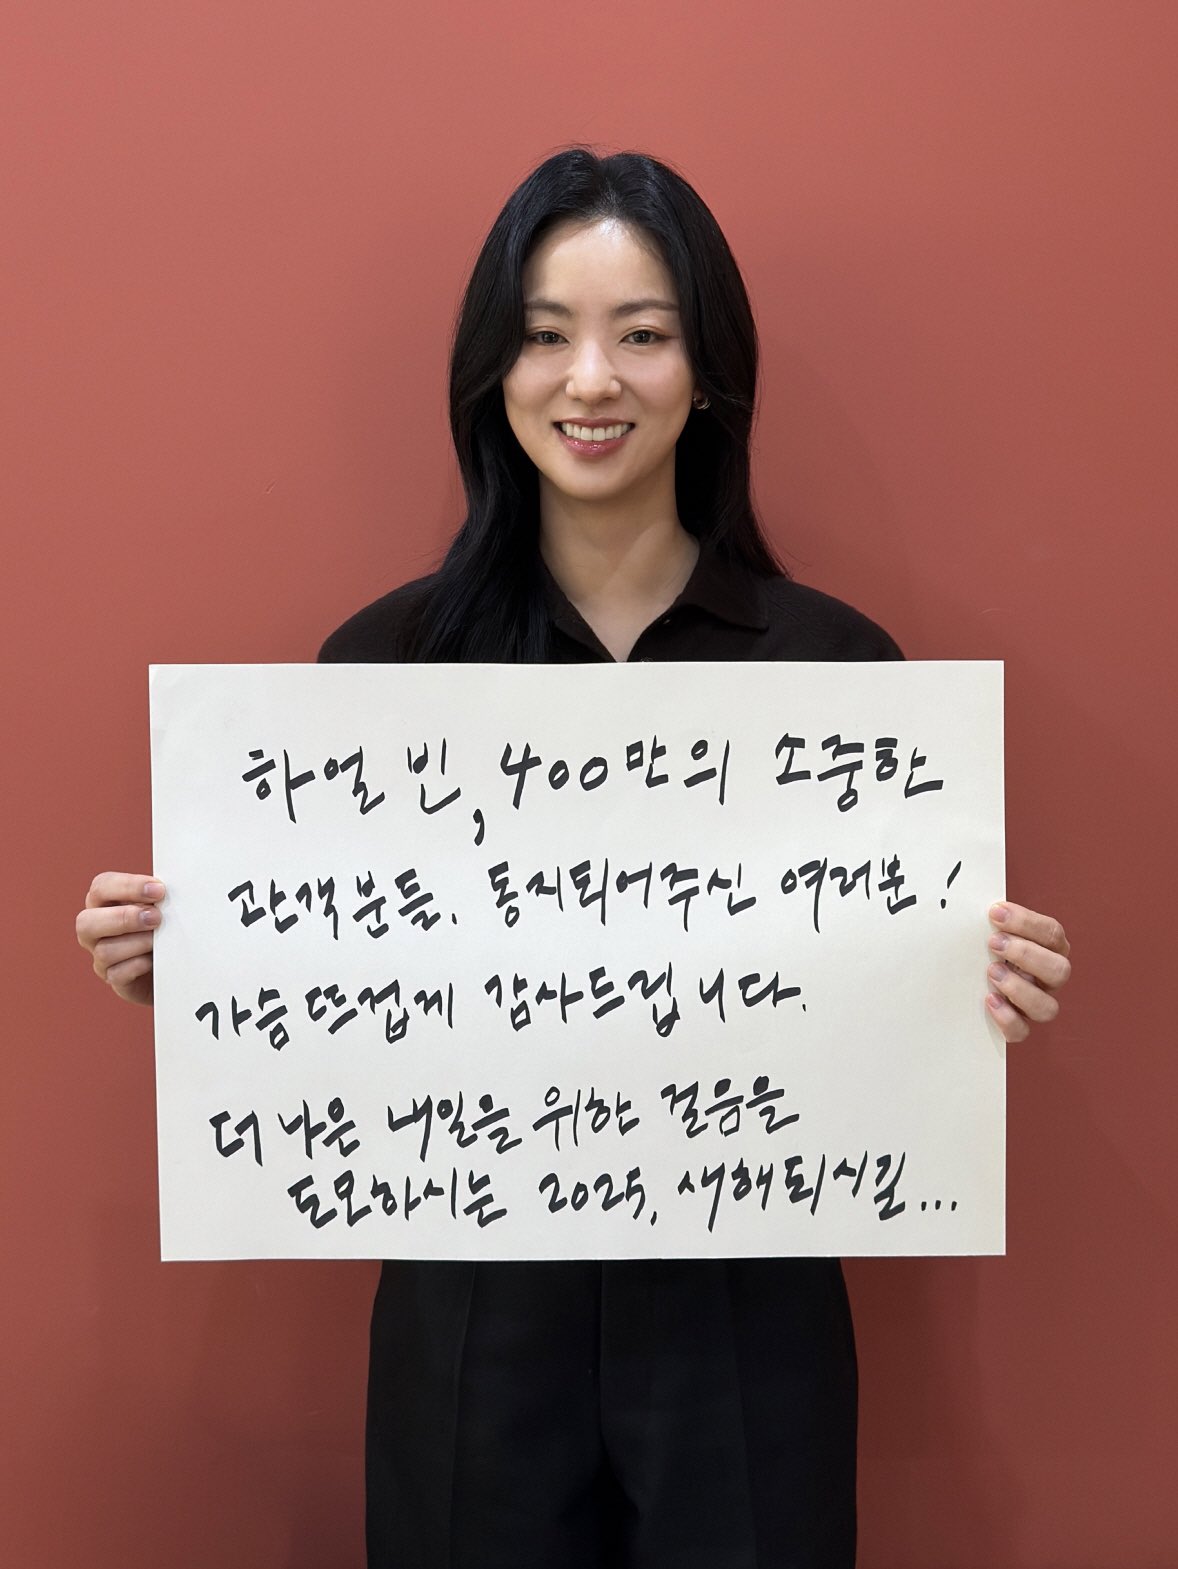 하얼빈, 400만의 소중한
관객분들. 동지되어주신 여러분!
가슴 뜨겁게 감사드립니다.
더 나은 내일을 위한 걸음을
도모하시는 2025, 새해되시길...